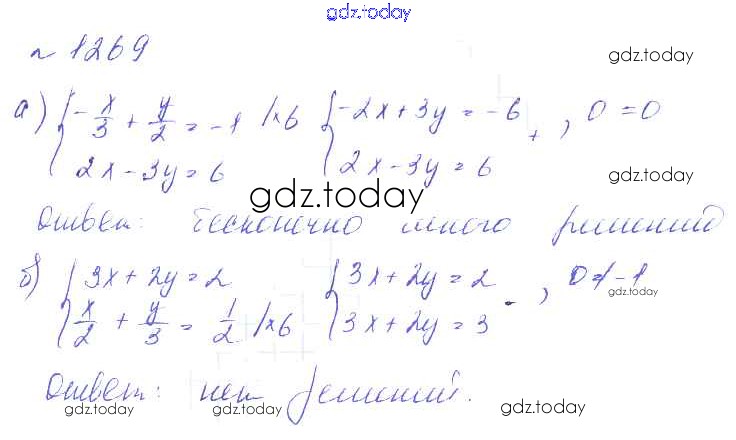 gdz.today
№ 1269
gdz.today
а) { -x/3 + y/2 = -1 |×6 { -2x+3y = -6 + , 0 = 0
2x - 3y = 6 2x - 3y = 6
gdz.today
gdz.today
Ответ: бесконечно много решений
б) { 3x + 2y = 2 { 3x + 2y = 2 - , 0 ≠ -1
x/2 + y/3 = 1/2 |×6 3x + 2y = 3
gdz.today
Ответ: нет решений.
gdz.today gdz.today gdz.today